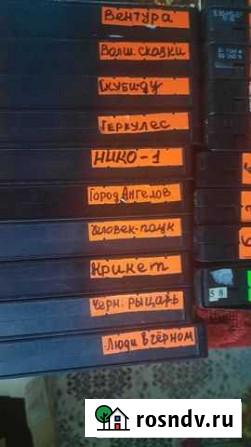 Вентура
Волш. сказки
Скуби ду
Геркулес
НИКО-1
Город Ангелов
Человек-паук
Крикет
Черн. рыцарь
Люди в чёрном
58
rosndv.ru